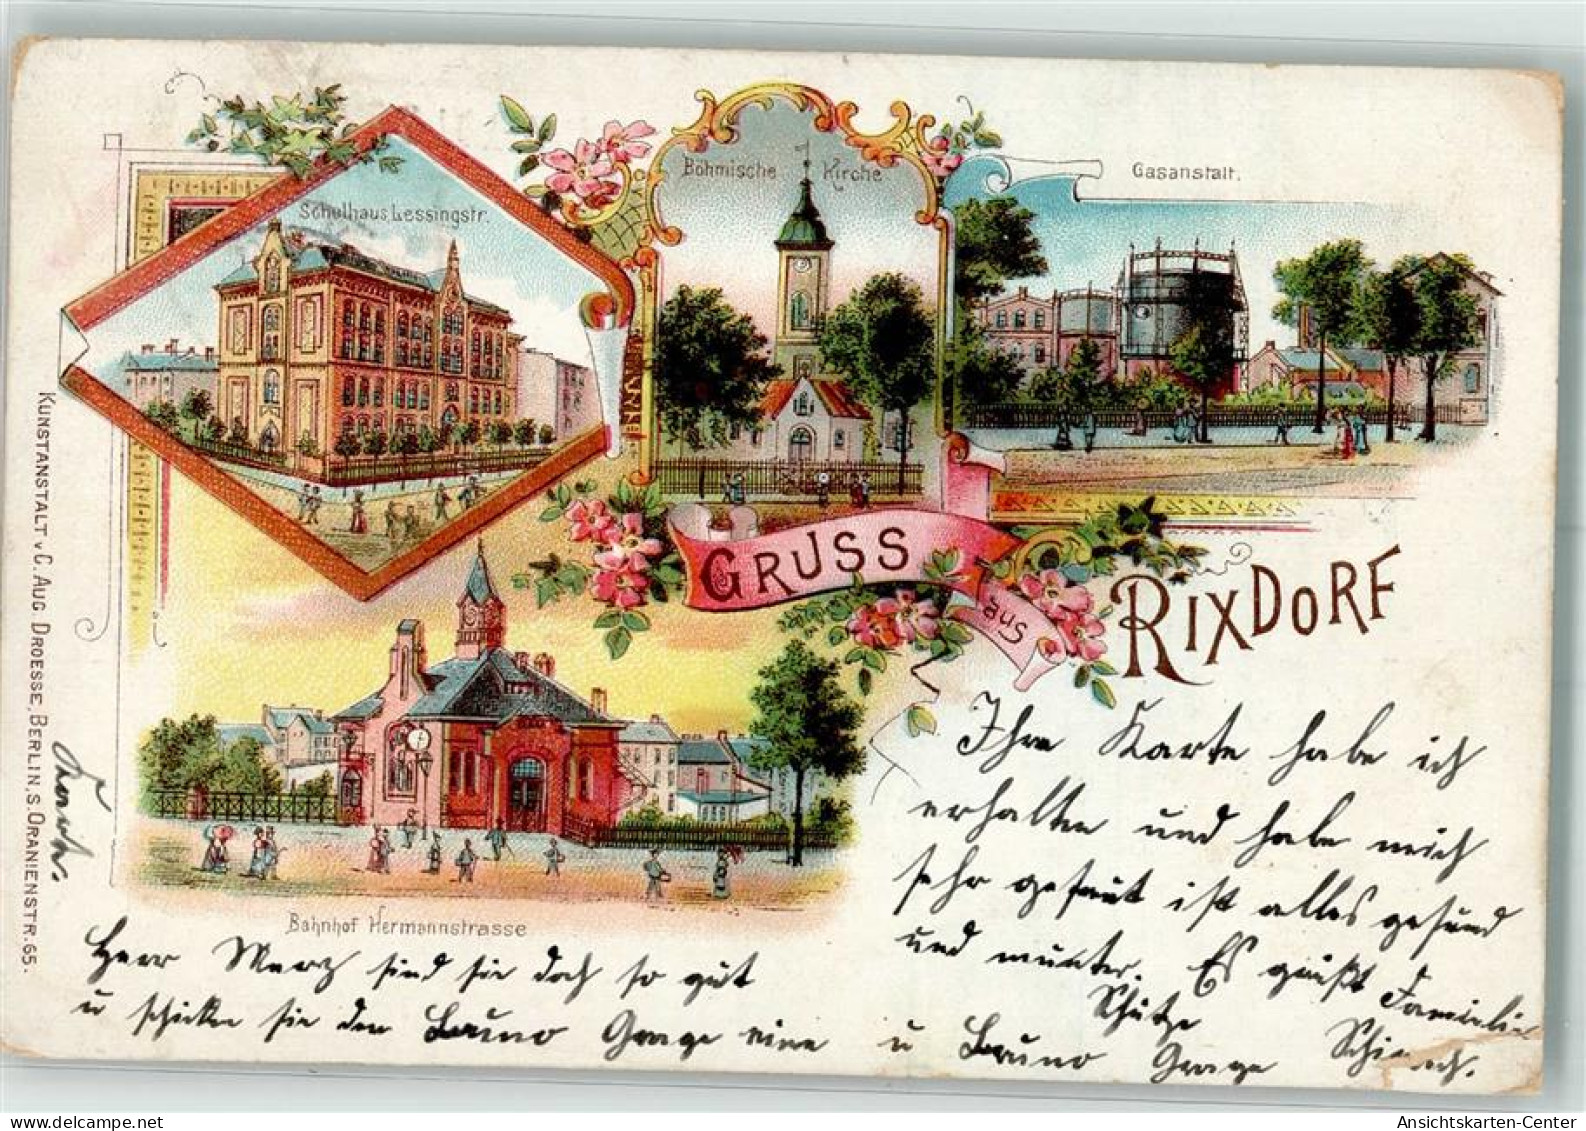 Schulhaus Lessingstr.
Böhmische Kirche
Gasanstalt.
GRUSS
aus
RIXDORF
Bahnhof Hermannstrasse
KUNSTANSTALT v. C. AUG. DROESSE, BERLIN, S. ORANIENSTR. 65.
Ihre Karte habe ich
erhalten und habe mich
sehr gefreut ist alles gesund
und munter. Es grüßt Familie
Schütze
u Bruno
Herr Merz sind sie doch so gut
u schicken sie den Bruno eine
Karte.
Ansichtskarten-Center